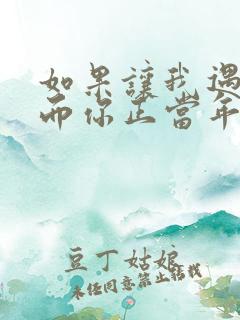 如果讓我遇
而你正當年
豆丁姑娘
未经同意禁止转载